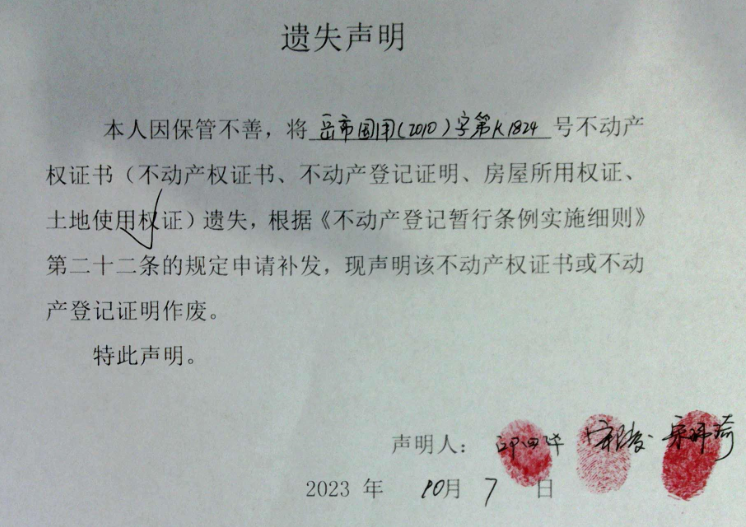 遗失声明
本人因保管不善，将 岳市国用(2010)字第K1824 号不动产
权证书（不动产权证书、不动产登记证明、房屋所用权证、
土地使用权证）遗失，根据《不动产登记暂行条例实施细则》
第二十二条的规定申请补发，现声明该不动产权证书或不动
产登记证明作废。
特此声明。
声明人：
2023 年 10月 7 日